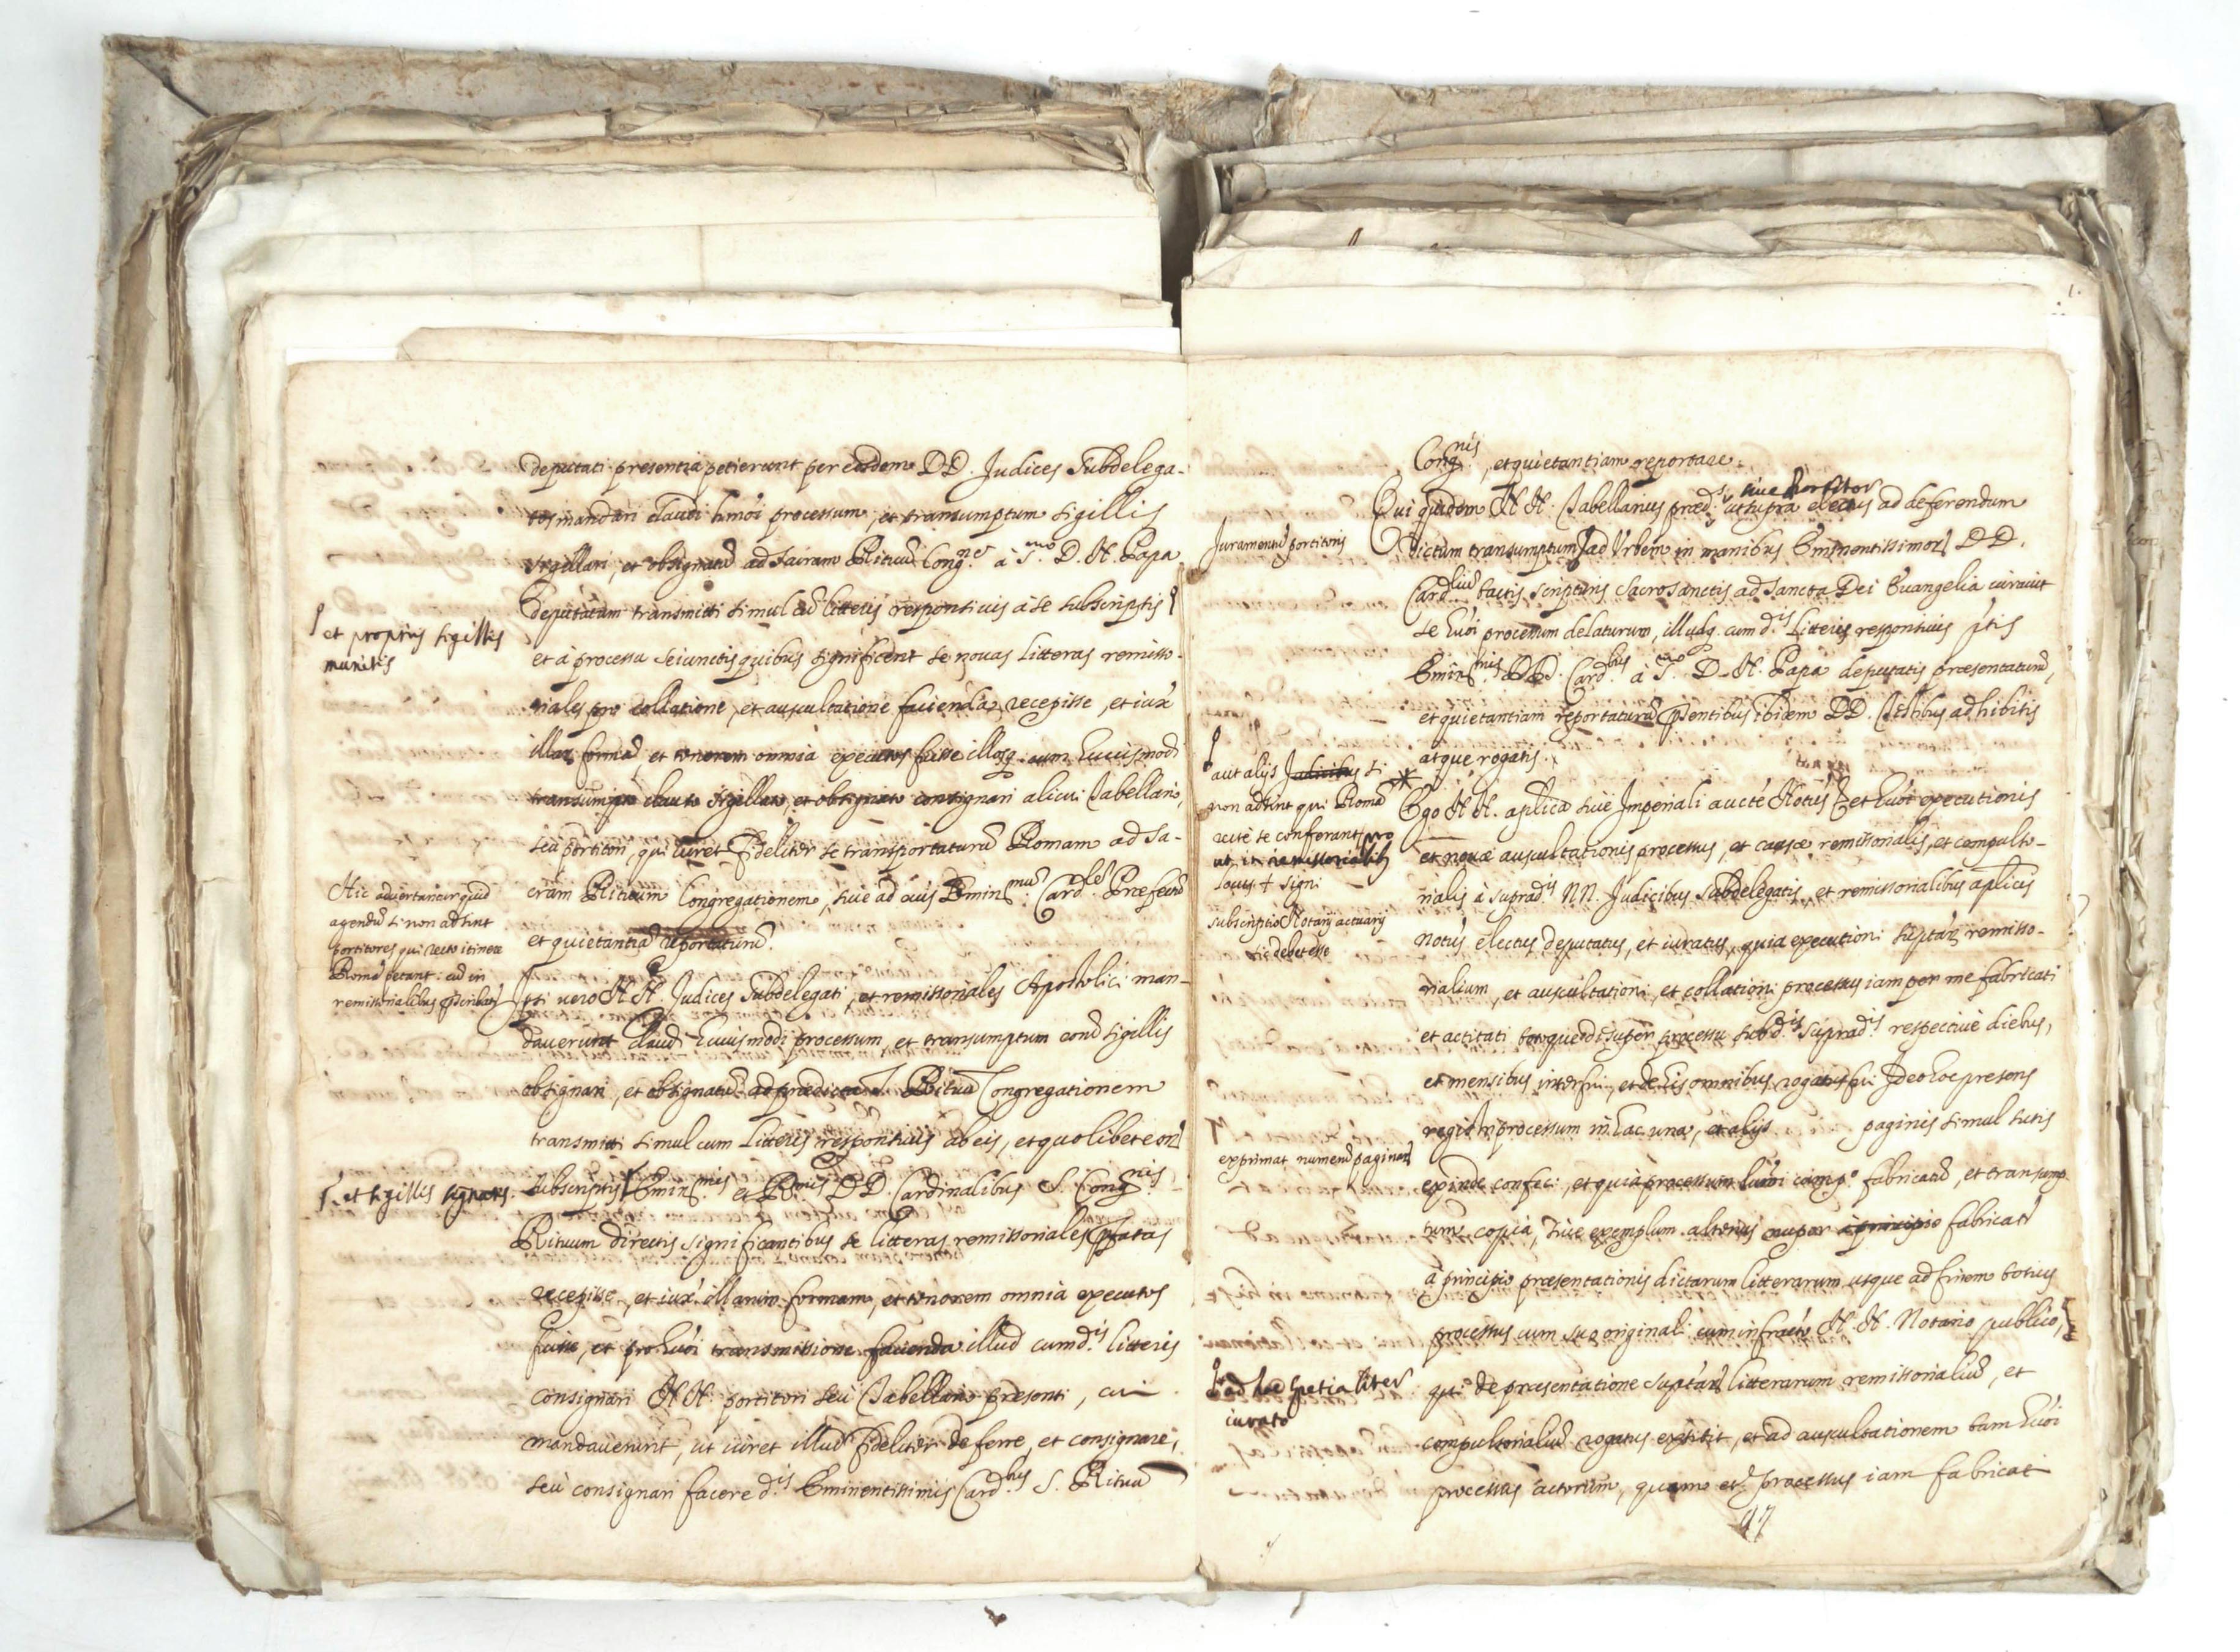 deputati presentia petierunt per eosdem DD. Judices Subdelega-
tos mandari claudi hmõi processum, et transumptum sigillis
sigillari, et obsignatũ ad Sacram Rituũ Cong.ne à S.mo D. N. Papa
deputatam transmitti simul cũ litteris responsivis à se subscriptis
et proprijs sigillis
munitis
et à processu seiunctis quibus significent se novas Litteras remisso-
riales pro collatione, et auscultatione facienda recepisse, et iux.
illar formã et tenorem omnia executos fuisse illosq. cum huiusmodi
transumpto clauso sigillato, et obsignato consignari alicui Tabellario,
seu portitori, qui iuret fideliter se transportaturũ Romam ad Sa-
cram Rituum Congregationem, sive ad eius Emin.mũ Card.lẽ Præfectũ
et quietantiã reportaturũ.
Hic advertantur quid
agendũ si non adsint
portitores qui recto itinere
Romã petant: eũd in
remissorialibus
Isti vero N. N. Judices Subdelegati, et remissoriales Apostolici man-
daverunt claudi huiusmodi processum, et transumptum sigillis
obsignari, et obsignatũ ad prædictã Rituũ Congregationem
transmitti simul cum Litteris responsivis ab eis, et quolibet eor
et sigillis signatis
subscriptis Emin.mis et R.mis DD. Cardinalibus S. Cong.nis
Rituum directis significantibus se litteras remissoriales pñtatas
recepisse, et iux. illarum formam, et tenorem omnia executos
fuisse, et pro hmõi transmissione facienda illud cum d.is litteris
consignari N. N. portitori seu Tabellario presenti, cui
mandaverunt, ut iuret illud fideliter deferre, et consignare,
seu consignari facere d.is Eminentissimis Card.bus S. Rituũ
Cong.nis, et quietantiam reportare.
sive portitor
Qui quidem N. N. Tabellarius præd.s ut supra electus ad deferendum
Juramentũ portitoris
dictum transumptum ad Urbem in manibus Eminentissimor DD.
Card.liũ tactis scripturis sacrosanctis ad Sancta Dei Evangelia iuravit
se hmõi processum delaturum, illudq. cum d.is Litteris responsivis
Emin.mis DD. Card.bus à S.mo D. N. Papa deputatis præsentaturũ,
et quietantiam reportaturũ pñtentibus ibidem DD. Testibus adhibitis
atque rogatis.
aut alijs Judicibus si
non adsint qui Romã
rectè se conferant pro
ut in remissorialib
Locus + signi
subscriptio Notarij actuarij
sic debet esse
Ego N. N. aplica sive Imperiali aucte Notus et hmõi executionis
et novæ auscultationis processus, et causæ remissorialis, et compulso-
rialis à suprad.is NN. Judicibus Subdelegatis, et remissorialibus aplicis
notus electus deputatus, et iuratus, quia executioni suptar remisso-
rialium, et auscultationi, et collationi processus iam per me fabricati
et actitati totiquẽ desuper processu sub d.is suprad.is respective diebus,
et mensibus interfui, et de his omnibus rogatus fui Ideo hoc presens
regim processum in hac una, et alijs paginis simul sutis
exprimat numerũ paginar
exinde confeci, et quia processum hmõi fabricatũ, et transump-
tum copia, sive exemplum alterius nuper à principio fabricati
à principio præsentationis dictarum litterarum usque ad finem totius
processus cum suo originali cum infracto N. N. Notario publico,
ad hoc spetialiter
iurato
qui de præsentatione suptar litterarum remissorialiũ, et
compulsorialiũ rogatus extitit, et ad auscultationem tam hmõi
processus actorum, quam et. processus iam fabricat
97